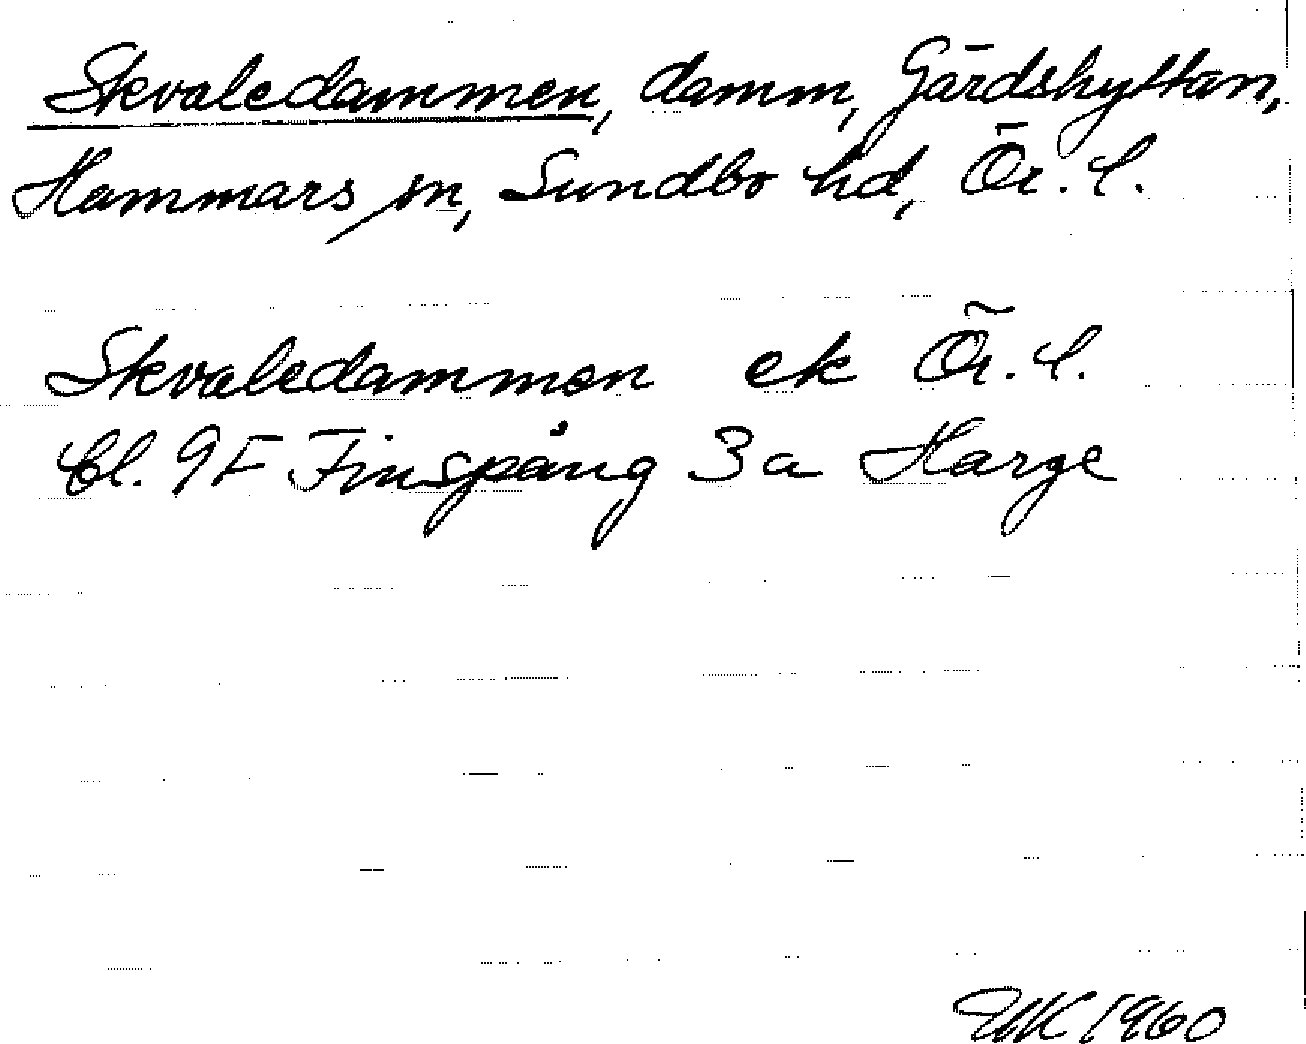 Skvaledammen, damm, Gärdshyttan,
Hammars sn, Sundbo hd, Ör. l.
Skvaledammen ek Ör. l.
bl. 9F Finspång 3a Harge
1960